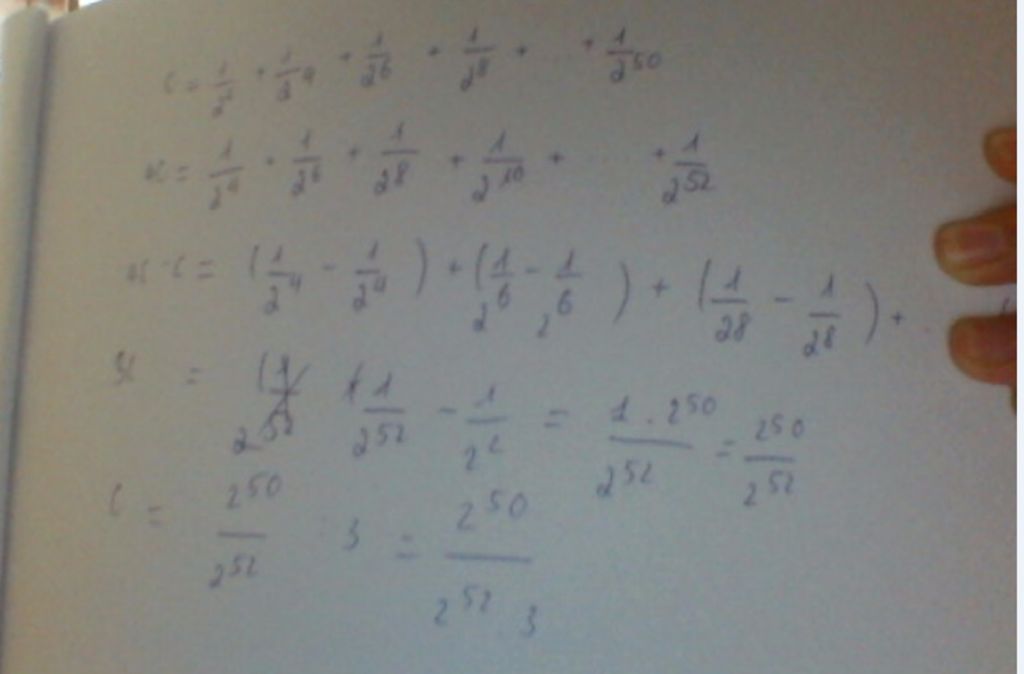 C = 1/2² + 1/2⁴ + 1/2⁶ + 1/2⁸ + ... + 1/2⁵⁰
= 1/2⁴ + 1/2⁶ + 1/2⁸ + 1/2¹⁰ + ... + 1/2⁵²
C = (1/2⁴ - 1/2⁴) + (1/2⁶ - 1/2⁶) + (1/28 - 1/28) + ..
= 1/2⁵² - 1/2² = 1.2⁵⁰/2⁵² = 2⁵⁰/2⁵²
C = 2⁵⁰/2⁵² : 3 = 2⁵⁰/2⁵² 3